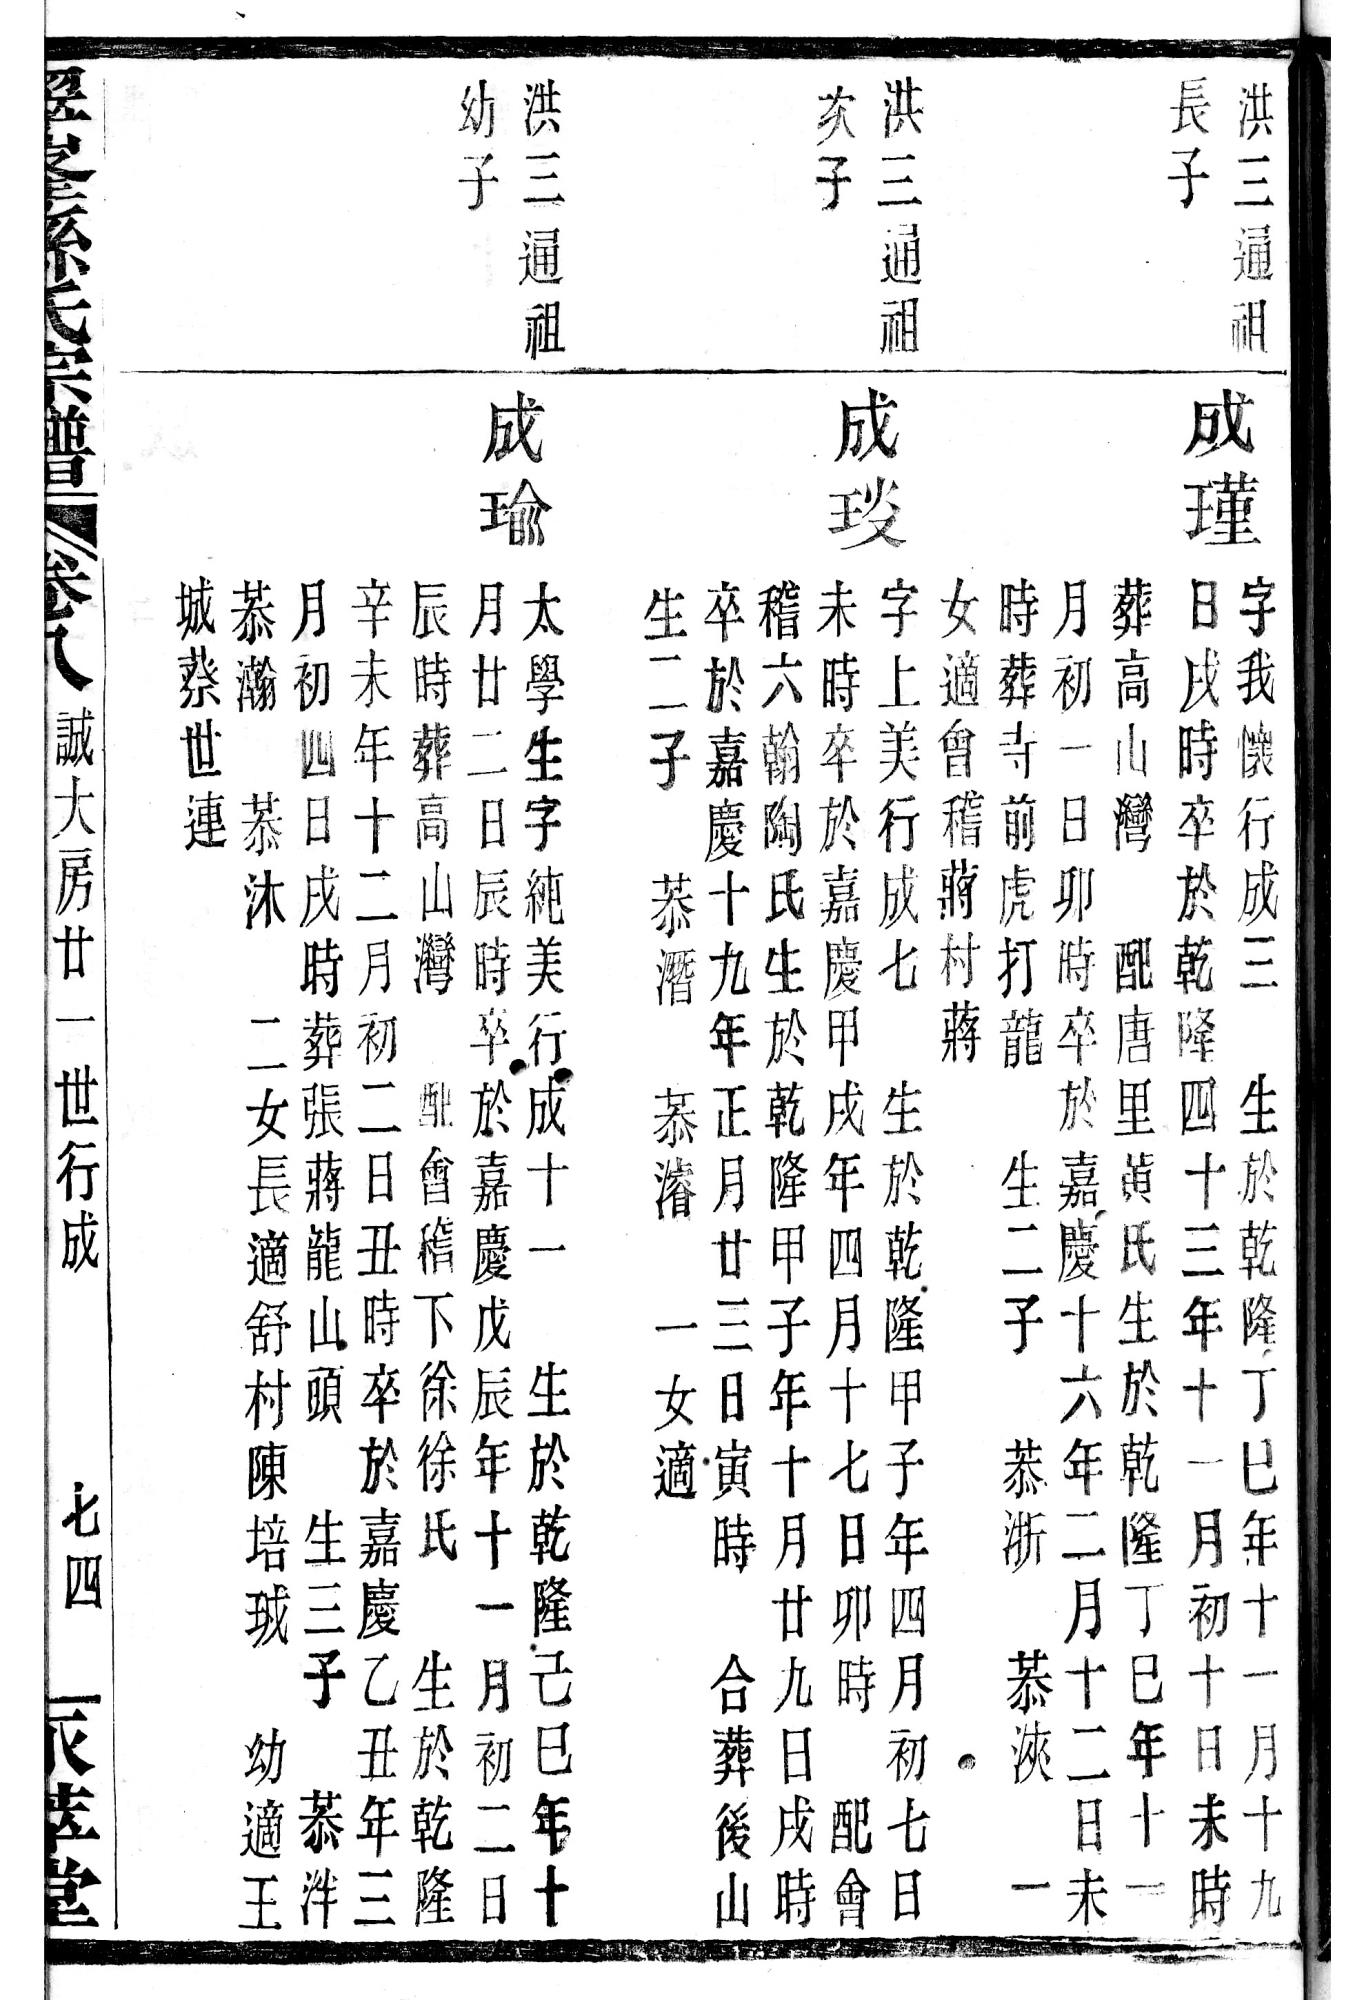 洪三通祖
長子
成瑾
字我懷行成三　生於乾隆丁巳年十一月十九
日戌時卒於乾隆四十三年十一月初十日未時
葬高山灣　配唐里黃氏生於乾隆丁巳年十一
月初一日卯時卒於嘉慶十六年二月十二日未
時葬寺前虎打龍　生二子　恭浙　恭浹　一
女適會稽蔣村蔣
洪三通祖
次子
成琰
字上美行成七　生於乾隆甲子年四月初七日
未時卒於嘉慶甲戌年四月十七日卯時　配會
稽六翰陶氏生於乾隆甲子年十月廿九日戌時
卒於嘉慶十九年正月廿三日寅時　合葬後山
生二子　恭潛　恭濬　一女適
洪三通祖
幼子
成瑜
太學生字純美行成十一　生於乾隆己巳年十
月廿二日辰時卒於嘉慶戊辰年十一月初二日
辰時葬高山灣　配會稽下徐徐氏　生於乾隆
辛未年十二月初二日丑時卒於嘉慶乙丑年三
月初四日戌時葬張蔣龍山頭　生三子　恭泮
恭瀚　恭沐　二女長適舒村陳培珹　幼適王
城蔡世連
孫氏宗譜　卷八　誠大房廿一世行成　七四　萃堂